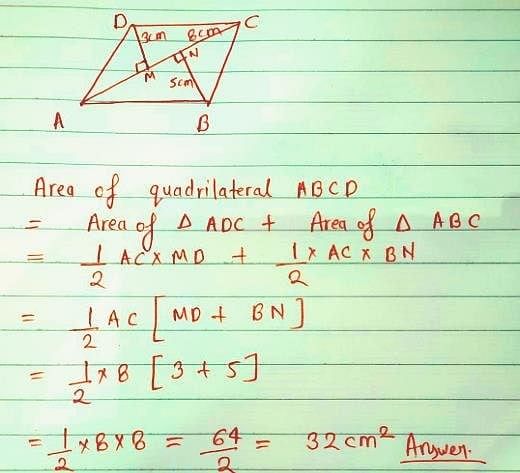 D C
3cm 8cm
M N
5cm
A B
Area of quadrilateral ABCD
= Area of Δ ADC + Area of Δ ABC
= 1/2 AC × MD + 1/2 × AC × BN
= 1/2 AC [ MD + BN ]
= 1/2 × 8 [ 3 + 5 ]
= 1/2 × 8 × 8 = 64/2 = 32 cm² Answer.